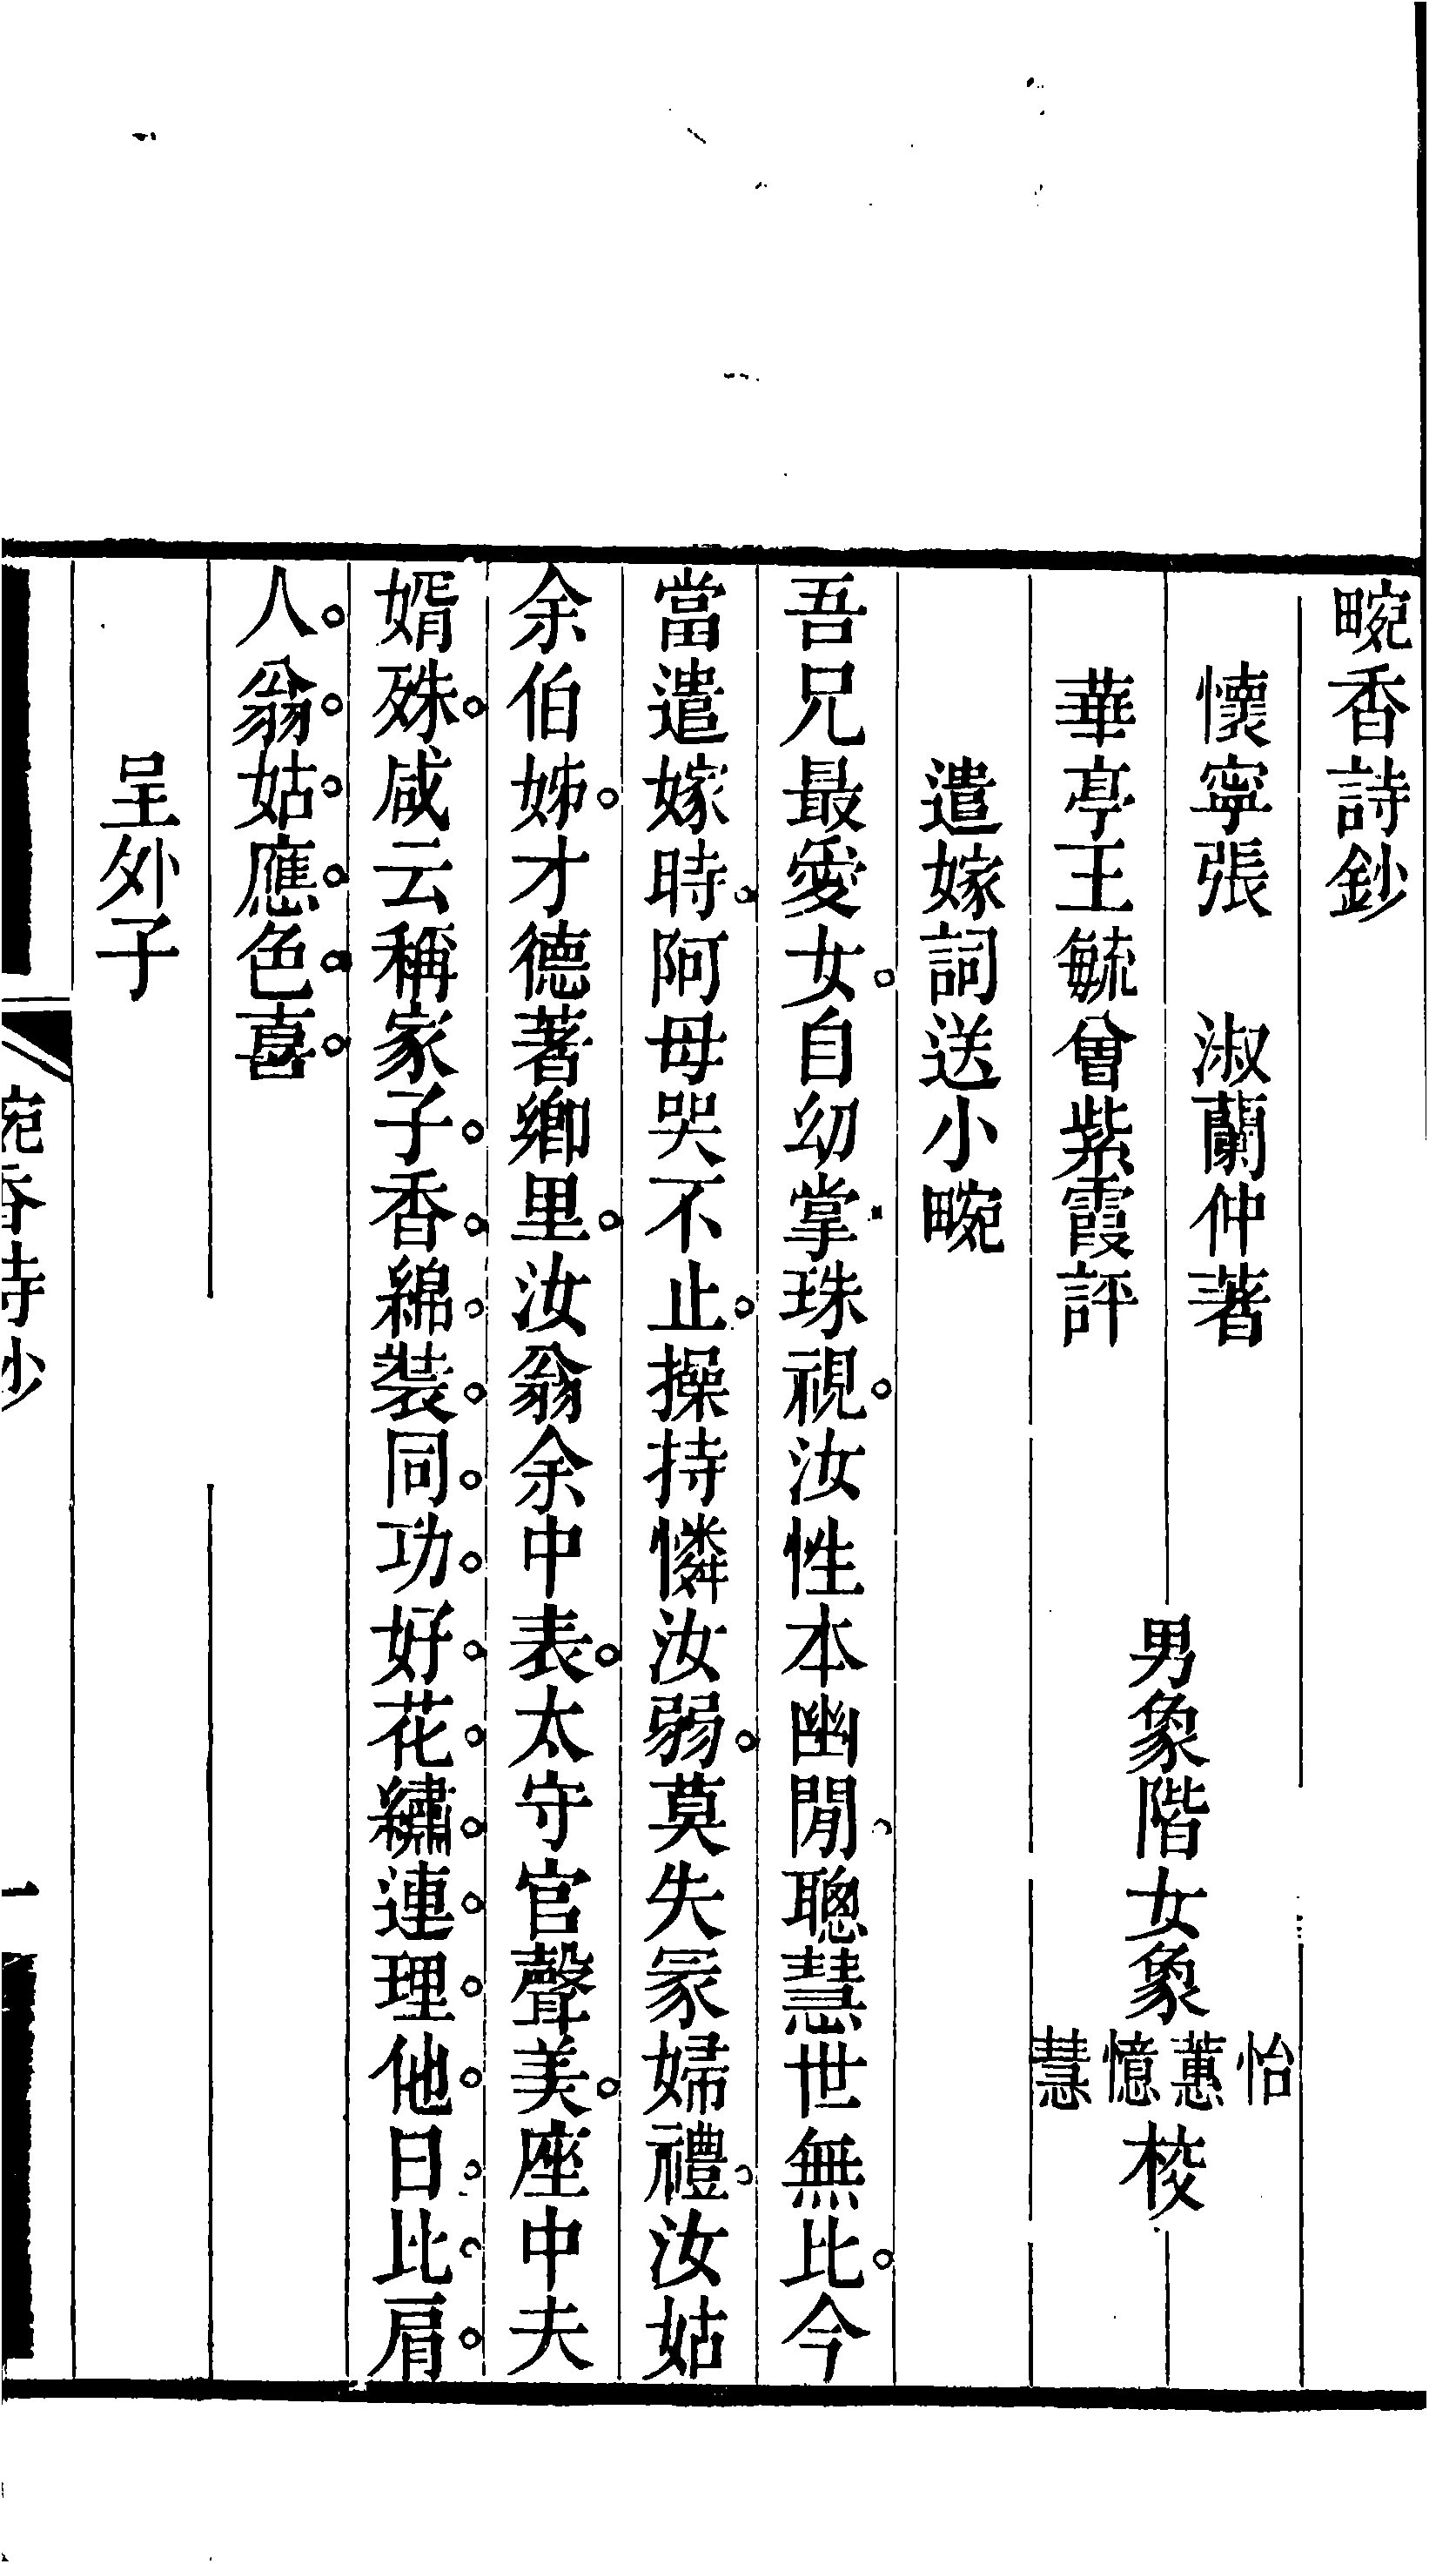 畹香詩鈔
懷寧張　淑蘭仲著
華亭王毓曾紫霞評
男象階女象怡蕙憶慧校
遣嫁詞送小畹
吾兄最愛女。自幼掌珠視。汝性本幽閒。聰慧世無比。今
當遣嫁時。阿母哭不止。操持憐汝弱。莫失冢婦禮。汝姑
余伯姊。才德著鄉里。汝翁余中表。太守官聲美。座中夫
婿殊。咸云稱家子。香綿裝同功。好花繡連理。他日比肩
人。翁姑應色喜。
呈外子
畹香詩鈔
一